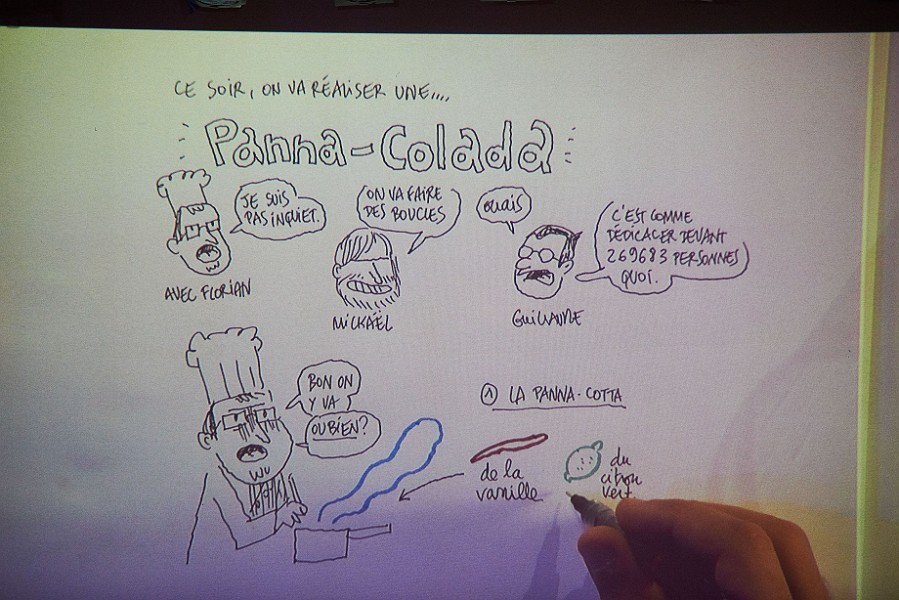 CE SOIR, ON VA RÉALISER UNE....
Panna-Colada
JE SUIS
PAS INQUIET.
AVEC FLORIAN
ON VA FAIRE
DES BOUCLES
MICKAËL
OUAIS
C'EST COMME
DÉDICACER DEVANT
269683 PERSONNES
QUOI.
GUILLAUME
BON ON
Y VA
OU BIEN?
1 LA PANNA-COTTA
de la
vanille
du
citron
vert